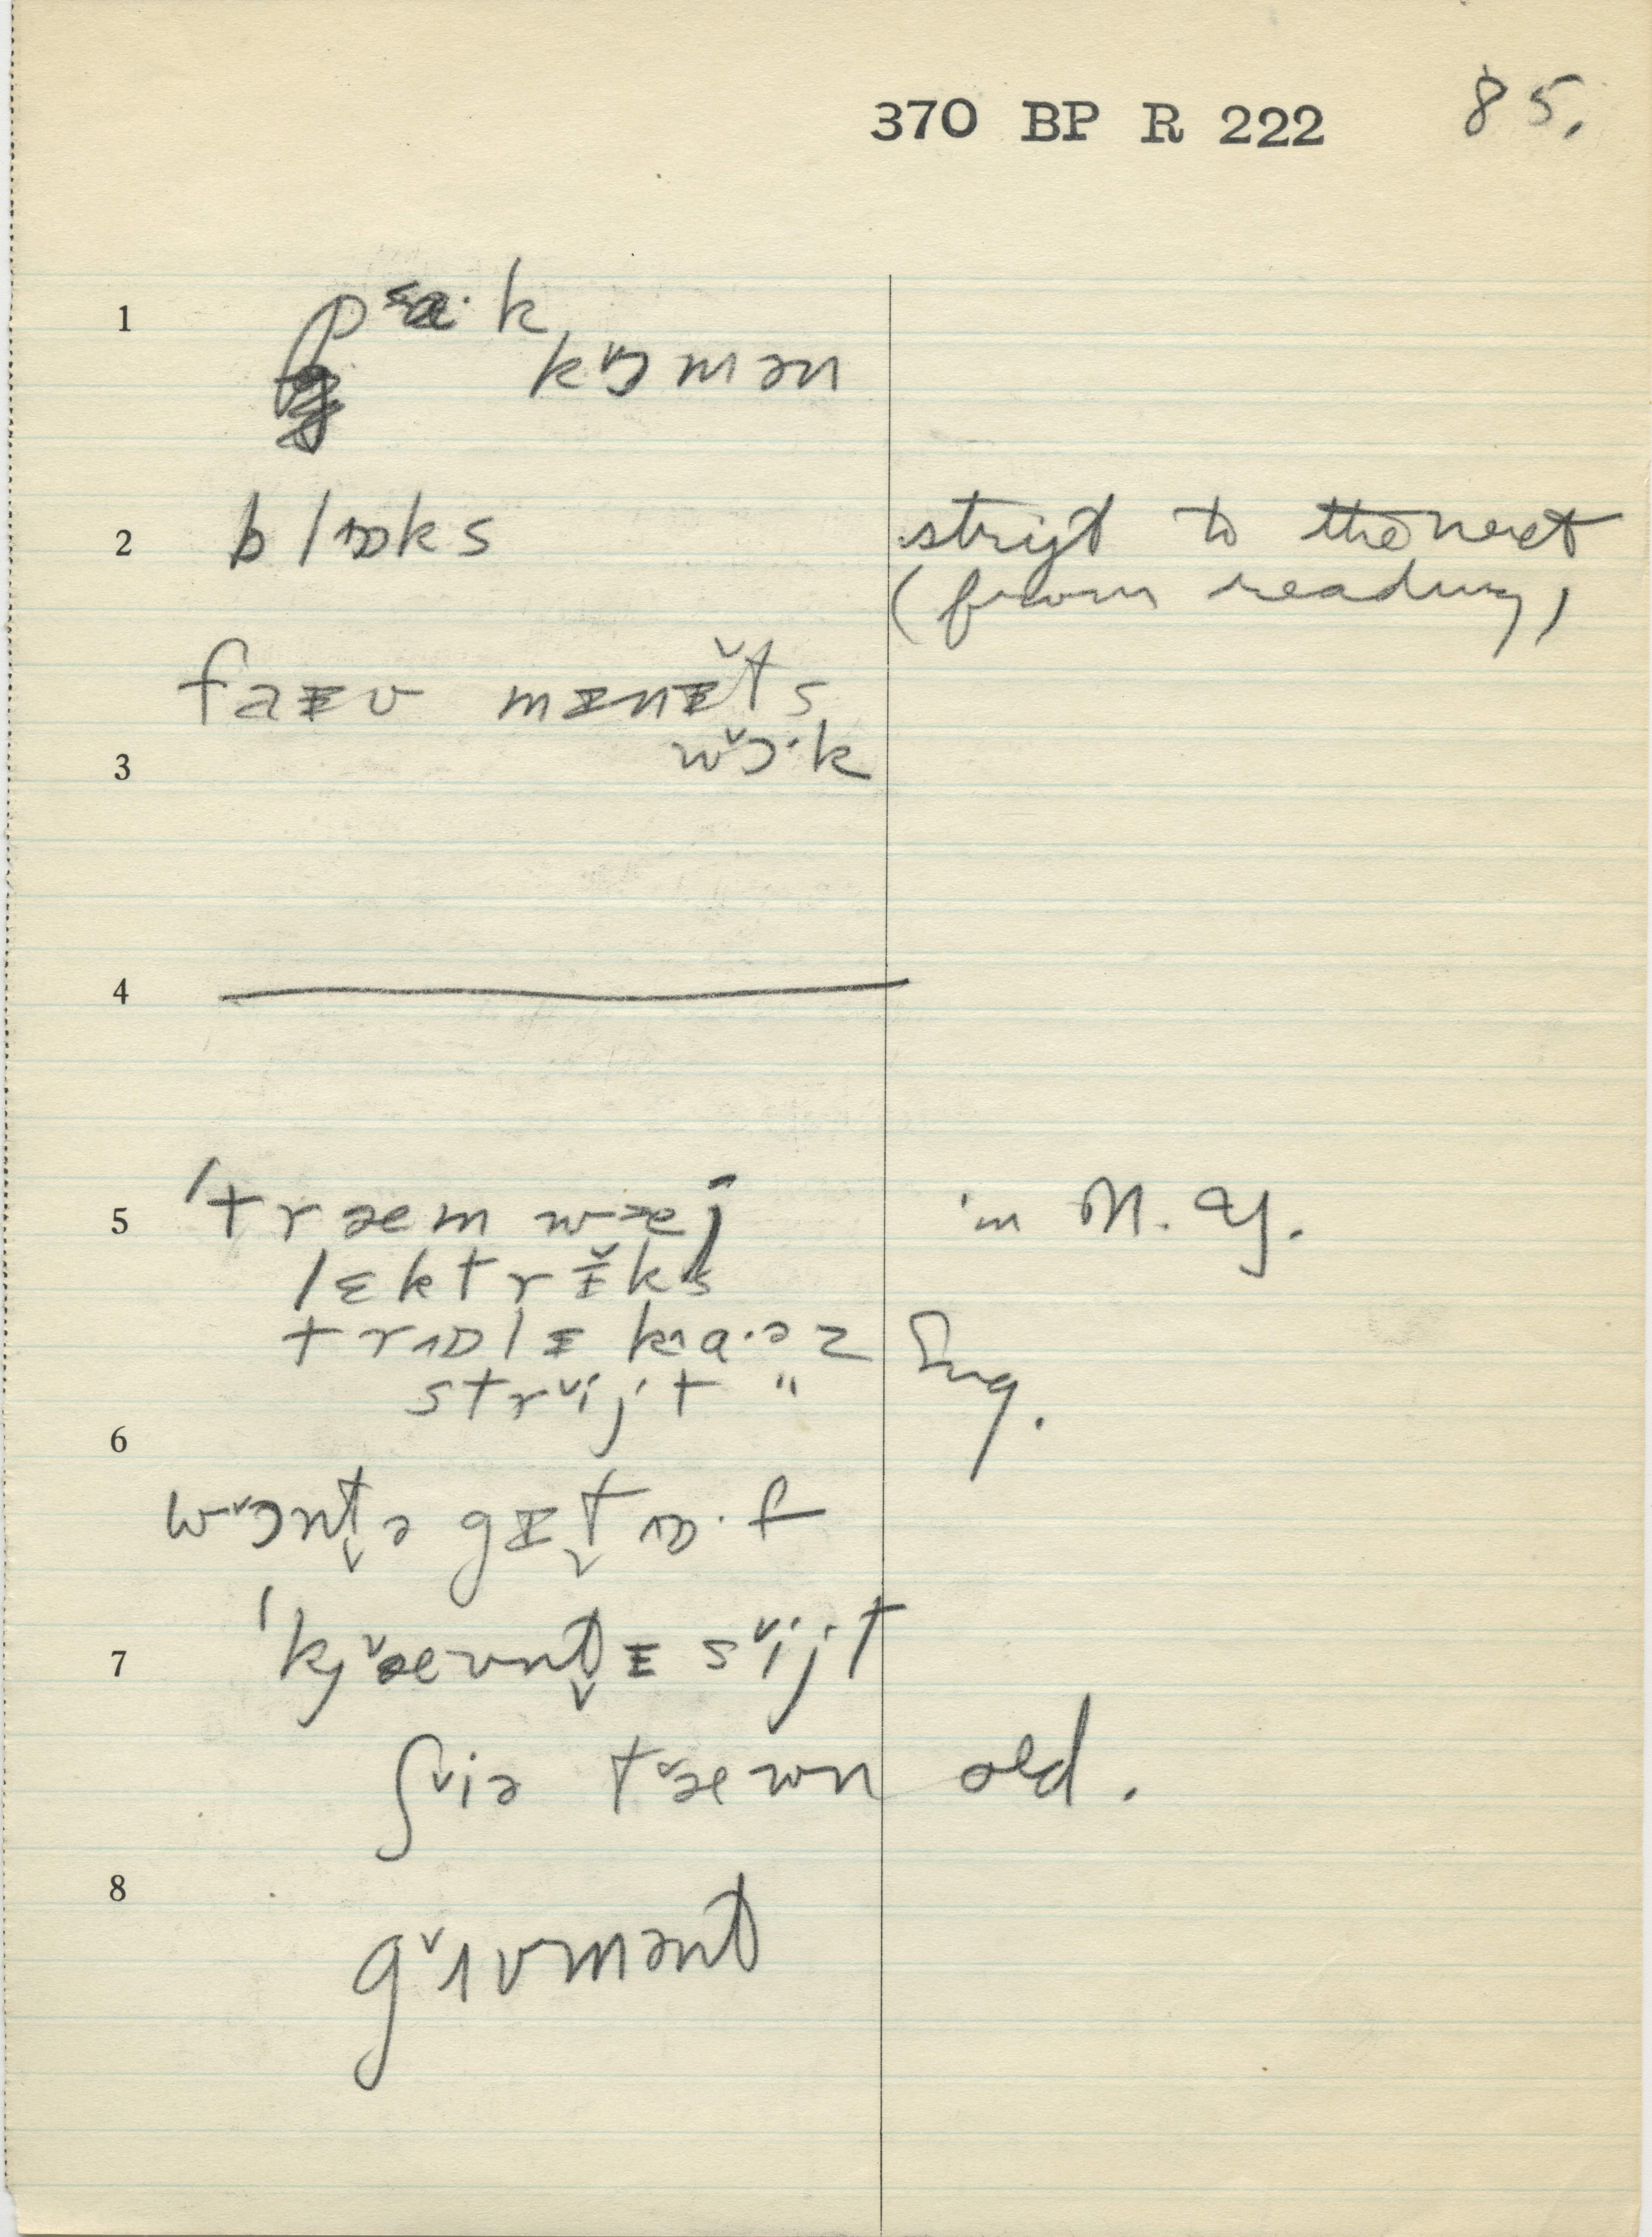 370 BP R 222 85.
1 pɛa·k
k˅ɔmən
2 blɒks strijt to the next
(from reading)
faɪv mɪnɪ̆ts
3 w˅ɔ·k
4
5 'træm wæj in N. Y.
lɛktrɪ̆ks
trɒlɪ ka·əz Eng.
str˅ijt "
6
w˅ɔnt̬ə gɪt̬ ɒ·f
7 'kj˅æʊnt̬ɪ s˅ijt
ʃ˅iə t˅æwn old.
8
g˅ʌvmənt